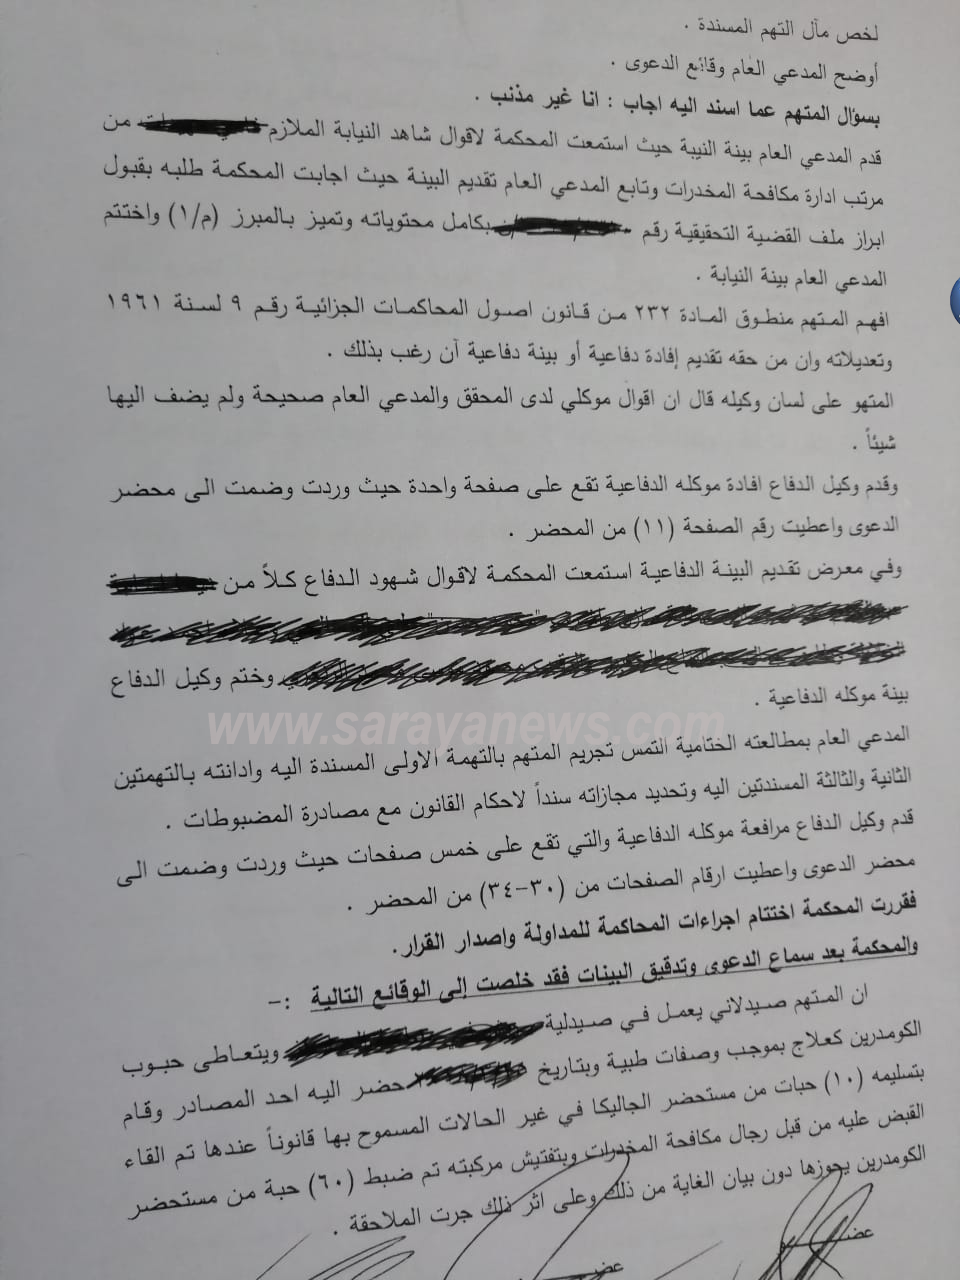 لخص مآل التهم المسندة .
أوضح المدعي العام وقائع الدعوى .
بسؤال المتهم عما اسند اليه اجاب : انا غير مذنب .
قدم المدعي العام بينة النيبة حيث استمعت المحكمة لاقوال شاهد النيابة الملازم من
مرتب ادارة مكافحة المخدرات وتابع المدعي العام تقديم البينة حيث اجابت المحكمة طلبه بقبول
ابراز ملف القضية التحقيقية رقم بكامل محتوياته وتميز بالمبرز (م/١) واختتم
المدعي العام بينة النيابة .
افهم المتهم منطوق المادة ٢٣٢ من قانون اصول المحاكمات الجزائية رقم ٩ لسنة ١٩٦١
وتعديلاته وان من حقه تقديم إفادة دفاعية أو بينة دفاعية آن رغب بذلك .
المتهو على لسان وكيله قال ان اقوال موكلي لدى المحقق والمدعي العام صحيحة ولم يضف اليها
شيئاً .
وقدم وكيل الدفاع افادة موكله الدفاعية تقع على صفحة واحدة حيث وردت وضمت الى محضر
الدعوى واعطيت رقم الصفحة (١١) من المحضر .
وفي معرض تقديم البينة الدفاعية استمعت المحكمة لاقوال شهود الدفاع كلاً من
وختم وكيل الدفاع
بينة موكله الدفاعية .
www.sarayanews.com
المدعي العام بمطالعته الختامية التمس تجريم المتهم بالتهمة الاولى المسندة اليه وادانته بالتهمتين
الثانية والثالثة المسندتين اليه وتحديد مجازاته سنداً لاحكام القانون مع مصادرة المضبوطات .
قدم وكيل الدفاع مرافعة موكله الدفاعية والتي تقع على خمس صفحات حيث وردت وضمت الى
محضر الدعوى واعطيت ارقام الصفحات من (٣٠-٣٤) من المحضر .
فقررت المحكمة اختتام اجراءات المحاكمة للمداولة واصدار القرار.
والمحكمة بعد سماع الدعوى وتدقيق البينات فقد خلصت إلى الوقائع التالية :-
ان المتهم صيدلاني يعمل في صيدلية ويتعاطى حبوب
الكومدرين كعلاج بموجب وصفات طبية وبتاريخ حضر اليه احد المصادر وقام
بتسليمه (١٠) حبات من مستحضر الجاليكا في غير الحالات المسموح بها قانوناً عندها تم القاء
القبض عليه من قبل رجال مكافحة المخدرات وبتفتيش مركبته تم ضبط (٦٠) حبة من مستحضر
الكومدرين يحوزها دون بيان الغاية من ذلك وعلى اثر ذلك جرت الملاحقة .
عضو
عضو